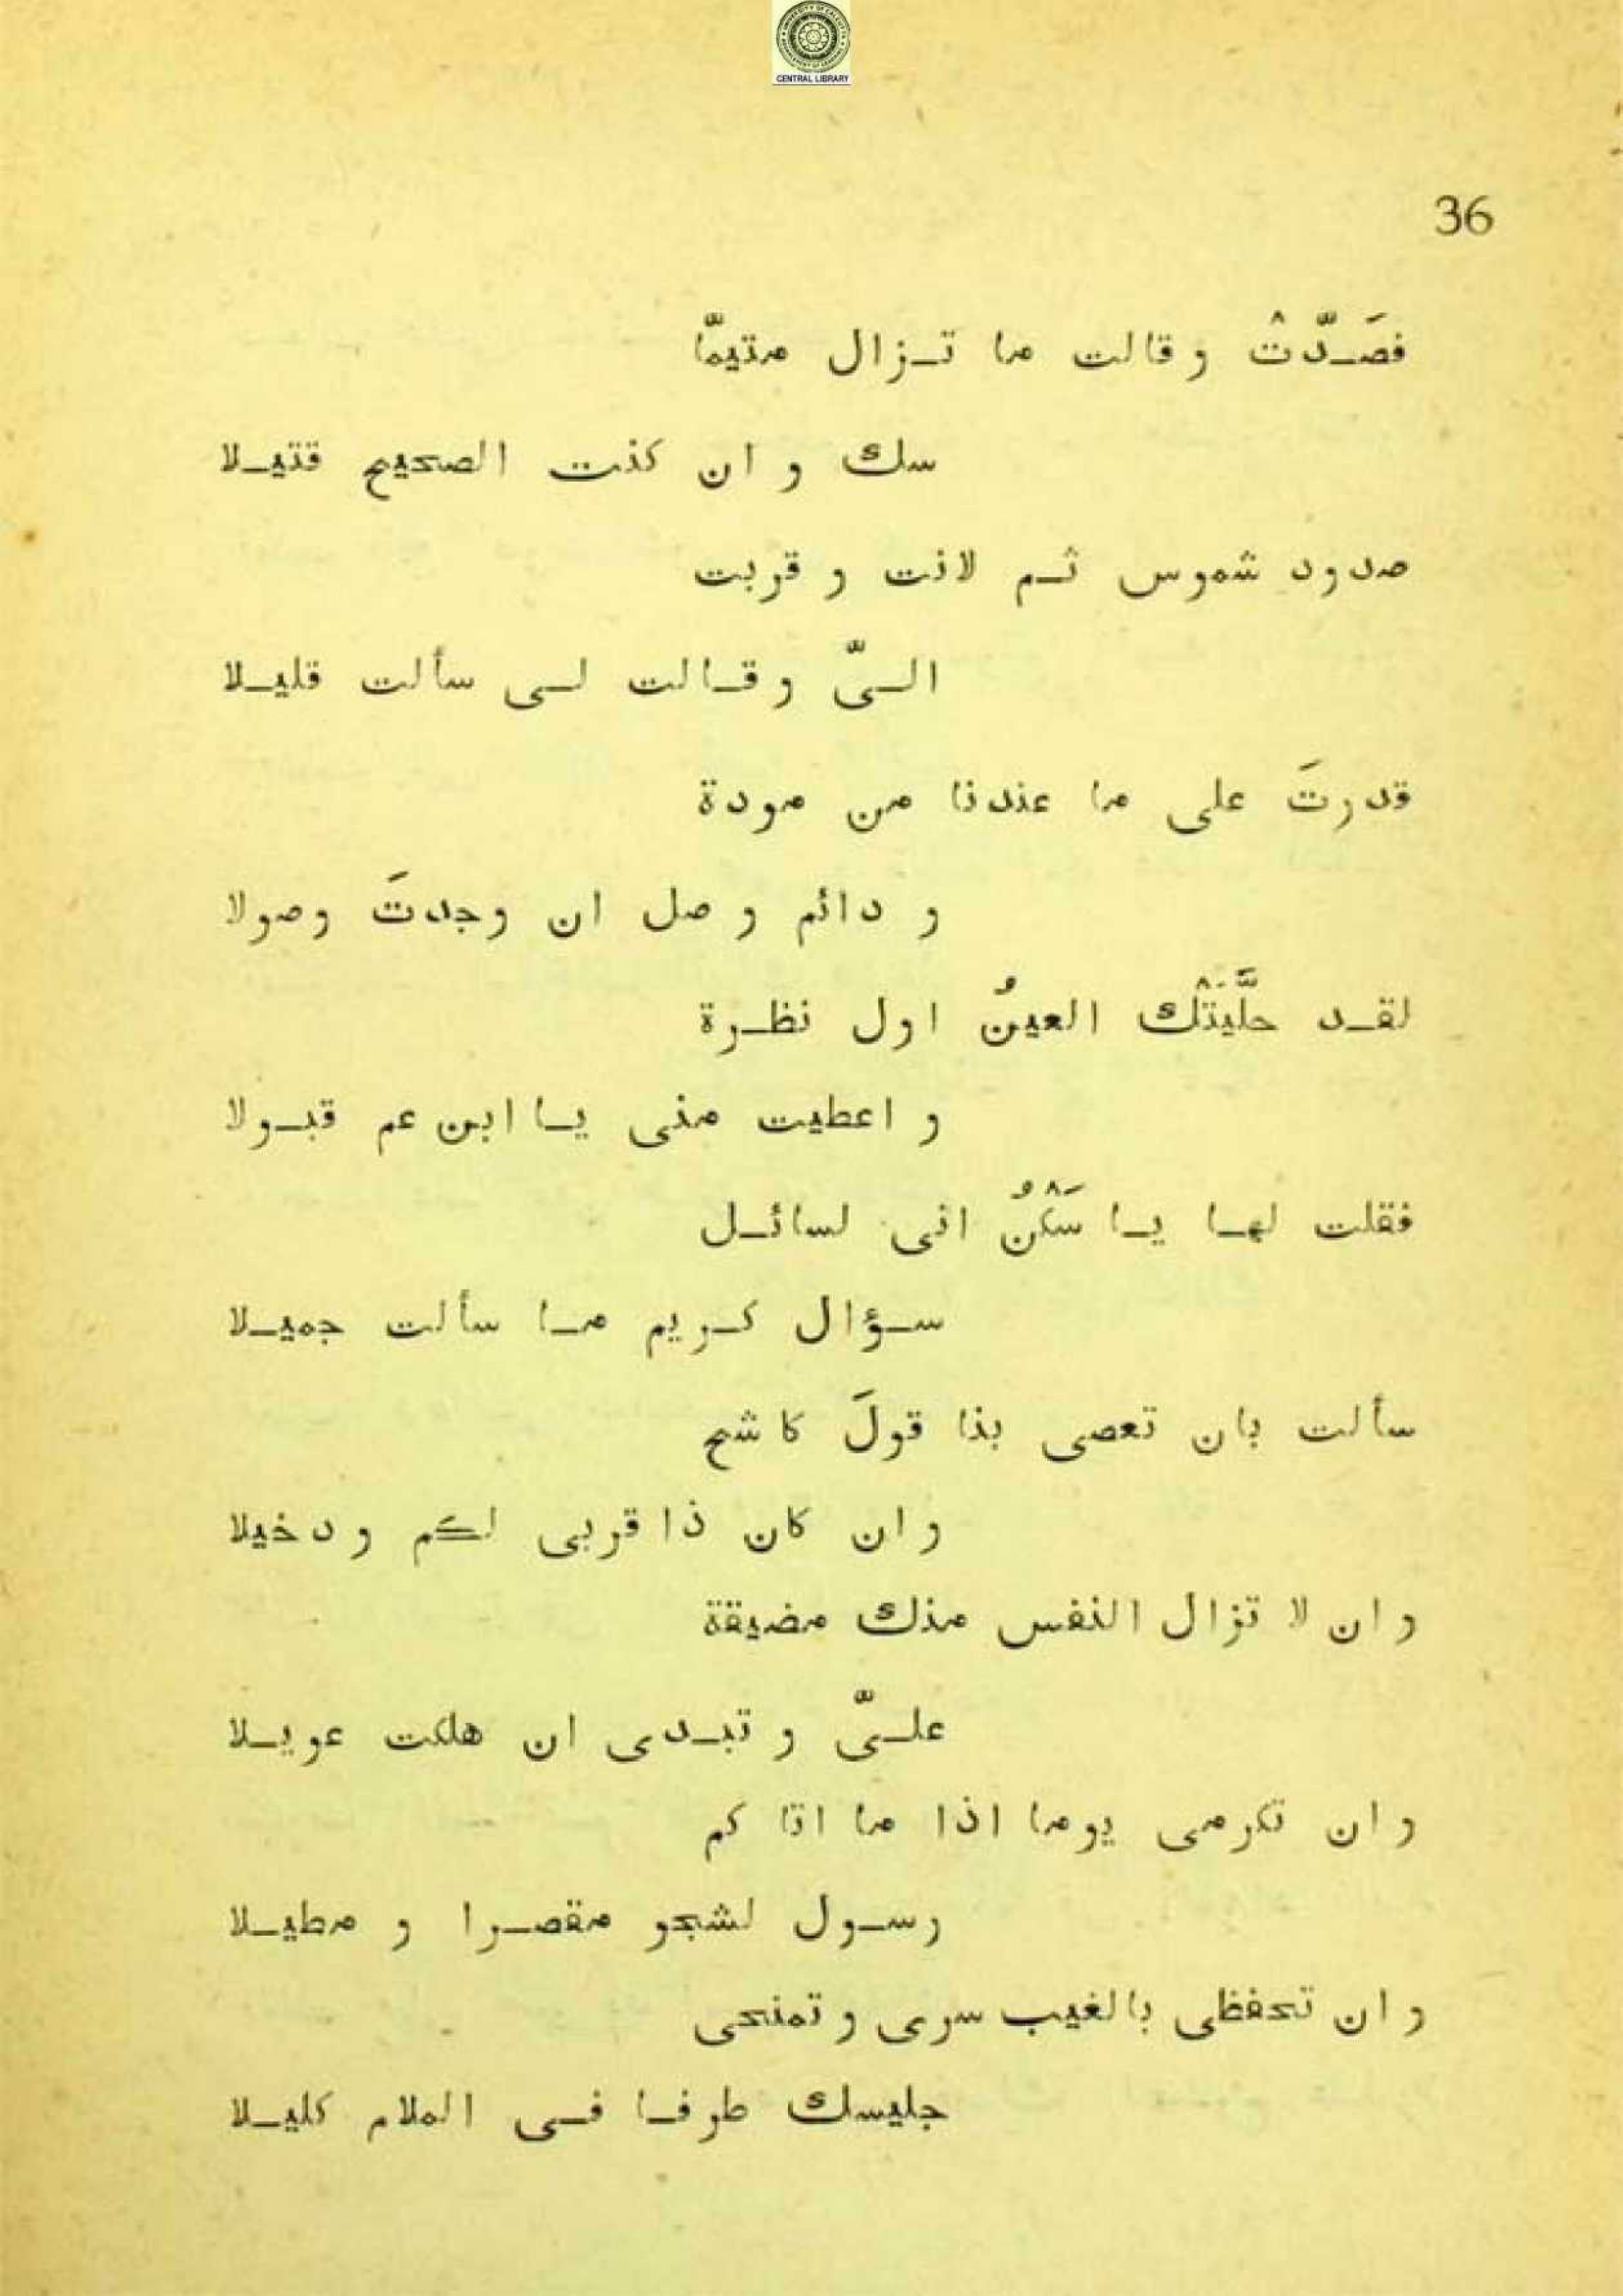 CENTRAL LIBRARY
36
فصَـدّتْ و قالت ما تـزال متيمّا
سك و ان كنت الصحيح قتيـلا
صدود شموس ثـم لانت و قربت
الـىّ و قـالت لـى سألت قليـلا
قدرتَ على ما عندنا من مودة
و دائم و صل ان وجدتَ وصولا
لقـد حلَّيَتْك العينُ اول نظـرة
و اعطيت منى يـا ابن عم قبـولا
فقلت لهـا يـا سَكْنُ انى لسائـل
سـؤال كـريم مـا سألت جميـلا
سألت بان تعصى بذا قولَ كاشح
و ان كان ذا قربى لكم و دخيلا
و ان لا تزال النفس منك مضيقة
علـىّ و تبـدى ان هلكت عويـلا
و ان تكرمى يوما اذا ما اتا كم
رسـول لشجو مقصـرا و مطيـلا
و ان تحفظى بالغيب سرى و تمنحى
جليسك طرفـا فـى الملام كليـلا